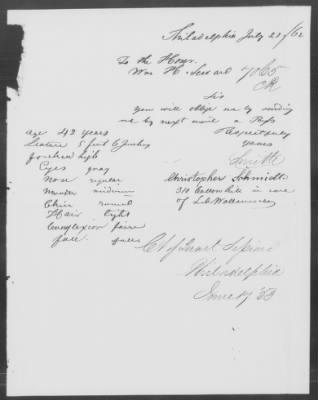 Philadelphia July 21/62
To the Honr.
Wm H. Seward 7065
Sir
You will oblige me by sending
me by next mail a Pass
Respectfully
Yours
Age 42 years
Stature 5 foot 6 Inches
forehead high
Eyes gray
Nose regular
Mouth midium
Chin round
Hair light
Complexion faire
face full
Christopher Schmidt
310 Callowhill in care
of
Ct of Quart Sessions
Philadelphia
June 17 '53